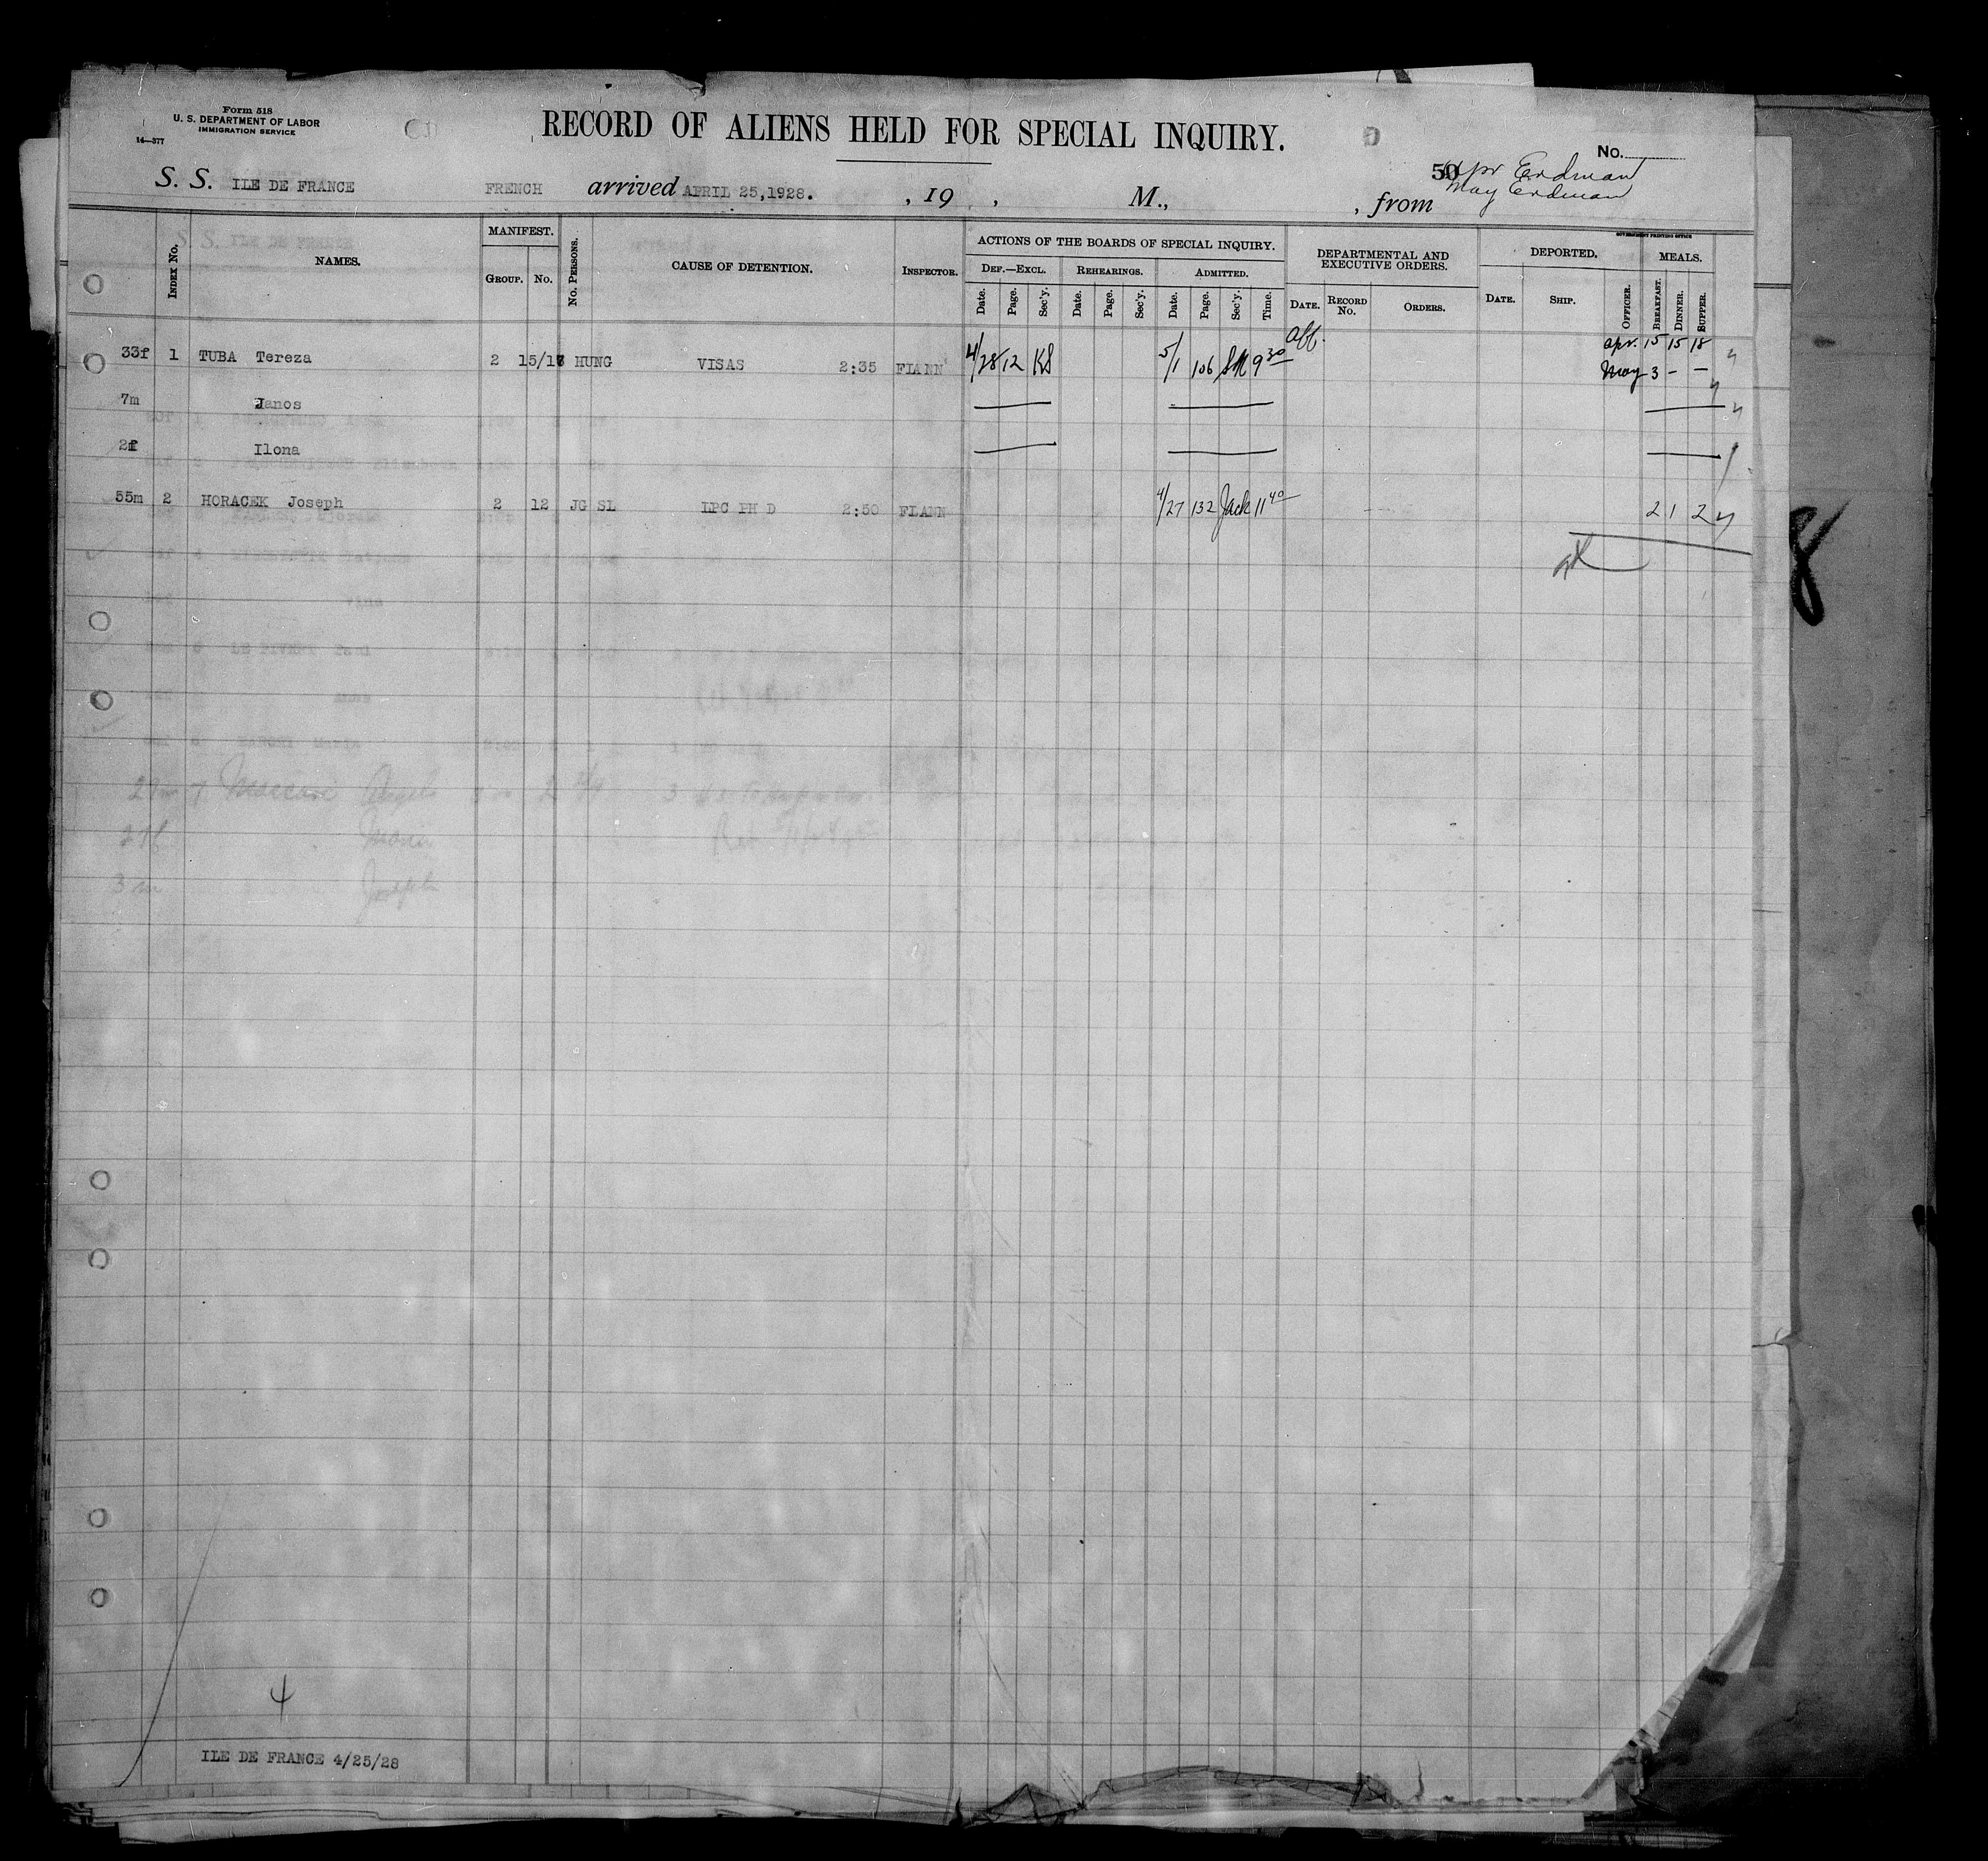 Form 518
U. S. DEPARTMENT OF LABOR
IMMIGRATION SERVICE
14—377
RECORD OF ALIENS HELD FOR SPECIAL INQUIRY.
No.
S. S. ILE DE FRANCE FRENCH arrived APRIL 25,1928. , 19 , M., , from
50 Apr Erdman
May Erdman
GOVERNMENT PRINTING OFFICE
INDEX No. NAMES. MANIFEST. No. PERSONS. CAUSE OF DETENTION. INSPECTOR. ACTIONS OF THE BOARDS OF SPECIAL INQUIRY. DEPARTMENTAL AND EXECUTIVE ORDERS. DEPORTED. MEALS.
GROUP. No. DEF.—EXCL. REHEARINGS. ADMITTED.
Date. Page. Sec'y. Date. Page. Sec'y. Date. Page. Sec'y. Time. DATE. RECORD No. ORDERS. DATE. SHIP. OFFICER. BREAKFAST. DINNER. SUPPER.
33f 1 TUBA Tereza 2 15/17 HUNG VISAS 2:35 FLANN 4/28 12 KS 5/1 106 SM 9 30 Aff. Apr. 15 15 18
May 3 - -
7m Janos
2f Ilona
55m 2 HORACEK Joseph 2 12 JG SL LPC PH D 2:50 FLANN 4/27 132 Jack 11 40 2 1 2
4
ILE DE FRANCE 4/25/28
8